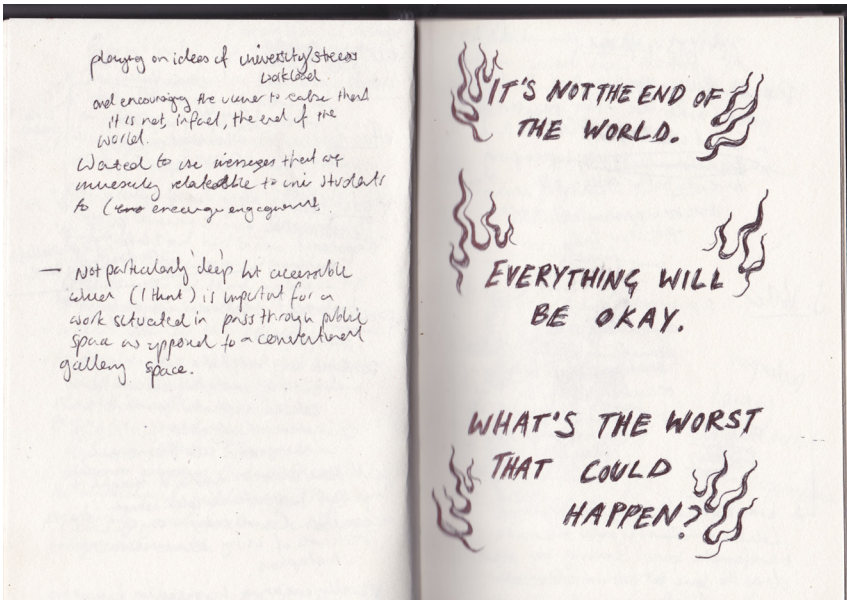 playing on ideas of university stress
workload
and encouraging the viewer to realise that
it is not, infact, the end of the
world.
Wanted to use messages that are
universally relateable to uni students
to encourage engagement.
— Not particularly 'deep' but accessible
which (I think) is important for a
work situated in pass through public
space as opposed to a conventional
gallery space.
IT'S NOT THE END OF
THE WORLD.
EVERYTHING WILL
BE OKAY.
WHAT'S THE WORST
THAT COULD
HAPPEN?